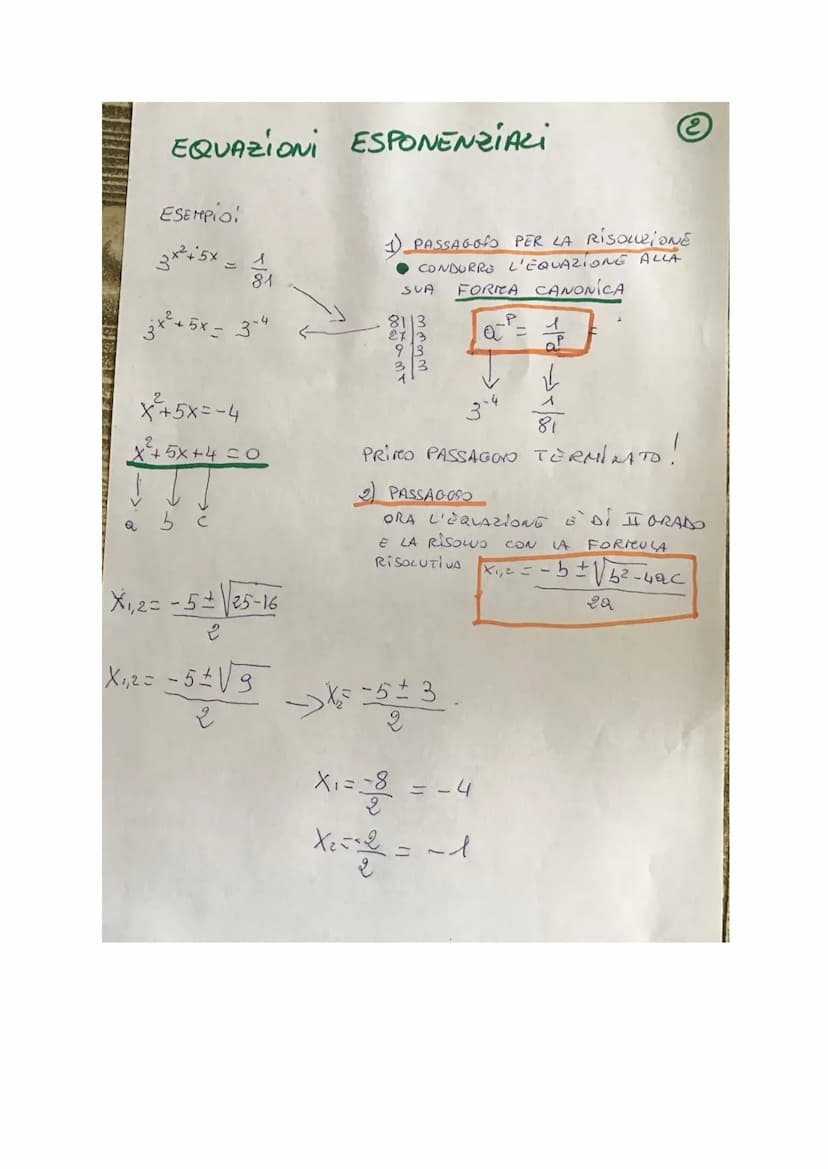 EQUAZIONI ESPONENZIALI
2
ESEMPIO:
3^{x²+5x} = 1/81
3^{x²+5x} = 3^{-4}
x²+5x=-4
x²+5x+4=0
a b c
1) PASSAGGIO PER LA RISOLUZIONE
• CONDURRE L'EQUAZIONE ALLA
SUA FORMA CANONICA
81|3
27|3
9|3
3|3
1|
a^{-p} = 1/a^p =
3^{-4} 1/81
PRIMO PASSAGGIO TERMINATO!
2) PASSAGGIO
ORA L'EQUAZIONE È DI II GRADO
E LA RISOLVO CON LA FORMULA
RISOLUTIVA x₁,₂ = -b±√(b²-4ac)/2a
x₁,₂= -5±√(25-16)/2
x₁,₂= -5±√9/2 → x₂= -5±3/2
x₁= -8/2 = -4
x₂= -2/2 = -1